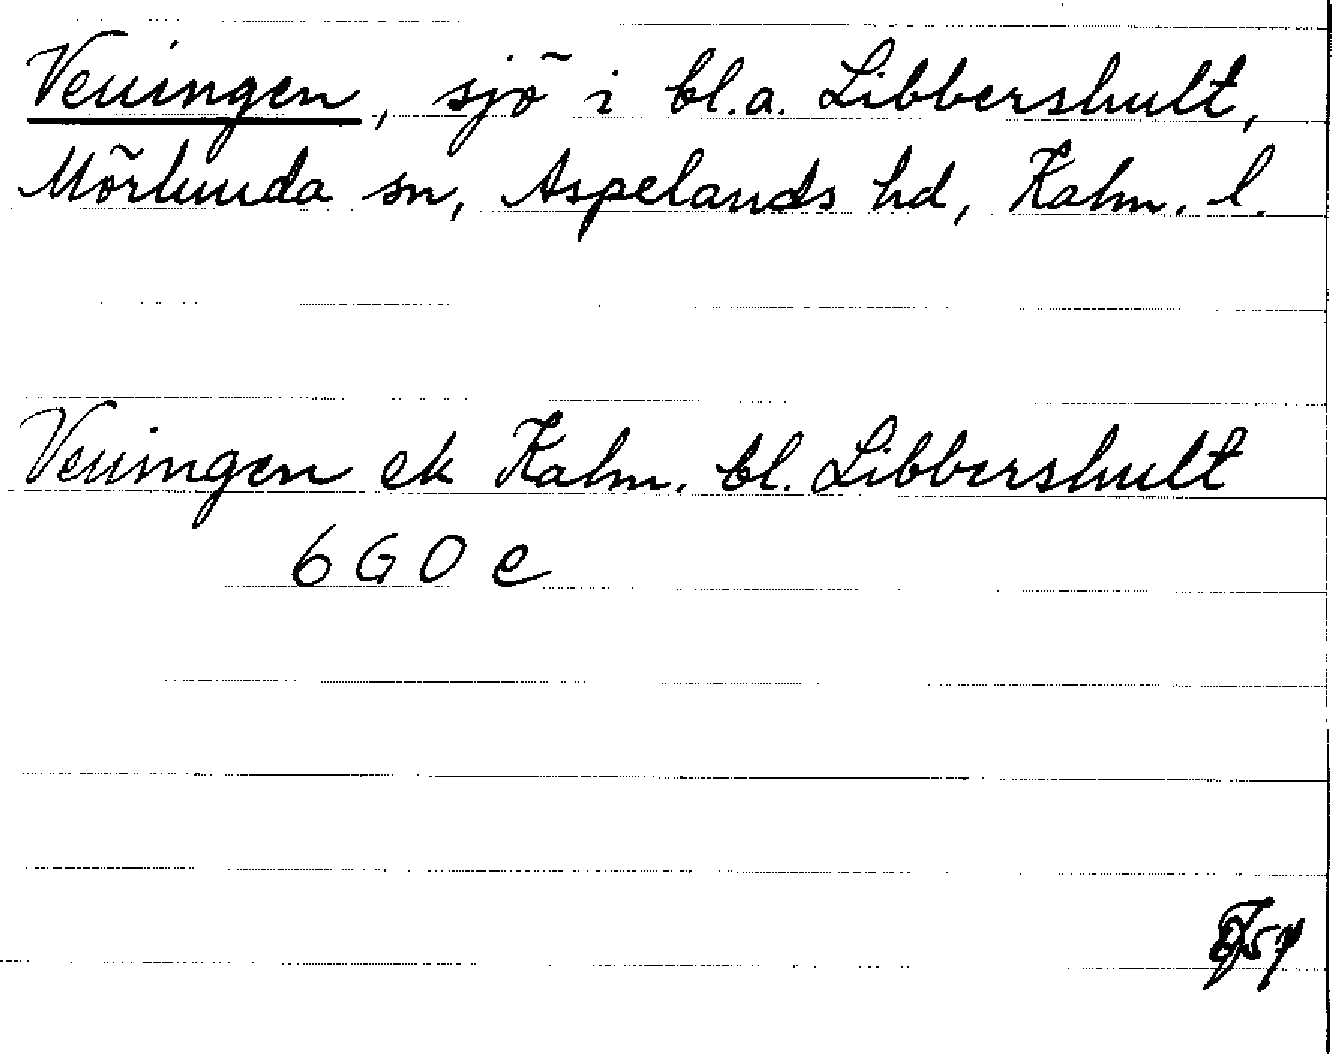 Veningen, sjö i bl.a. Libbershult,
Mörlunda sn, Aspelands hd, Kalm. l.
Veningen ek Kalm. bl. Libbershult
6 G O e